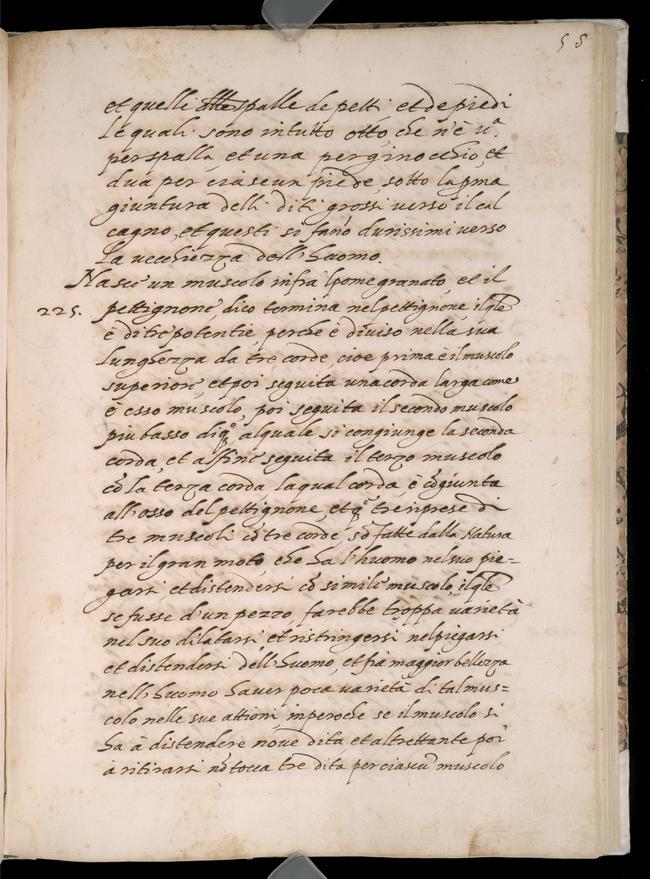 58
et quelli alle spalle de petti et de piedi
le quali sono in tutto otto, che n'è ua.
per spalla, et una per ginocchio, et
dua per ciascun piede, sotto la pma
giuntura delli diti grossi verso il cal
cagno, et questi si fano durissimi verso
la vecchiezza dell'huomo.
Nasce un muscolo infra 'l pomegranato, et il
225. pettignone, dico termina nel pettignone, il qle
è di tre potentie, perche è diviso nella sua
lunghezza da tre corde, cioe prima è il muscolo
superiore, et poi seguita una corda larga come
è esso muscolo, poi seguita il secondo muscolo
piu basso di qo, al quale si congiunge la seconda
corda, et al fine seguita il terzo muscolo
cõ la terza corda la qual corda, è cõgiunta
all'osso del pettignone, et qe tre riprese di
tre muscoli cõ tre corde, sõ fatte dalla Natura
per il gran moto che ha l'huomo nel suo pie=
garsi et distendersi cõ simile muscolo, il qle
se fusse d'un pezzo, farebbe troppa varietà
nel suo dilatarsi, et ristringersi nel piegarsi
et distendersi dell'huomo, et fia maggior bellezza
nell'huomo haver poca varietà di tal mus=
colo nelle sue attioni, imperoche se il muscolo si
ha à distendere nove dita, et altrettante poi
à ritirarsi nõ tocca tre dita per ciascũ muscolo